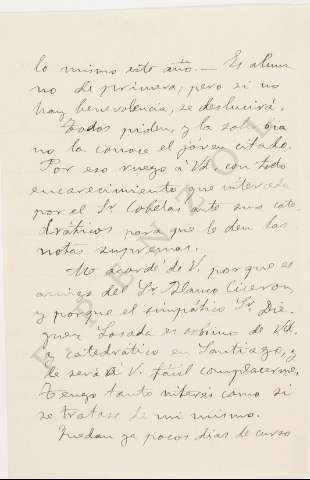 lo mismo este año.— Es alum
no de primera; pero si no
hay benevolencia, se deslucirá.
Todos piden, y la
no la conoce el joven citado.
Por eso ruego á Vd. con todo
encarecimiento que interceda
por el Sr Cobelas ante sus cate-
dráticos para que le den las
notas supremas.
Me acordé de V. porque es
amigo del Sr. Blanco Cicerón,
y porque el simpático Sr. Dié-
guez Losada es sobrino de Vd.
y catedrático en Santiago, y
le será á V. fácil complacerme.
Tengo tanto interés como si
se tratase de mi mismo.
Quedan ya pocos dias de curso